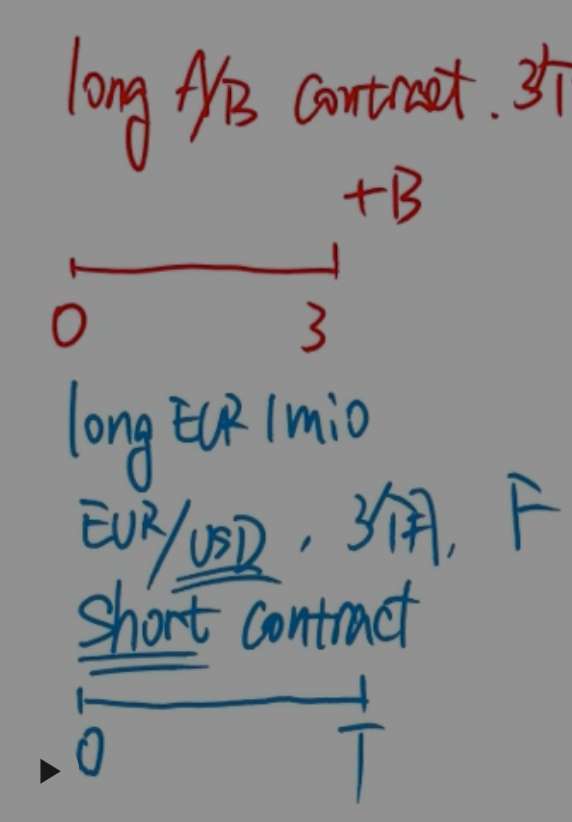 long A/B contract. 3个
+B
0 3
long EUR 1 mio
EUR/USD, 3个月, F
Short contract
0 T